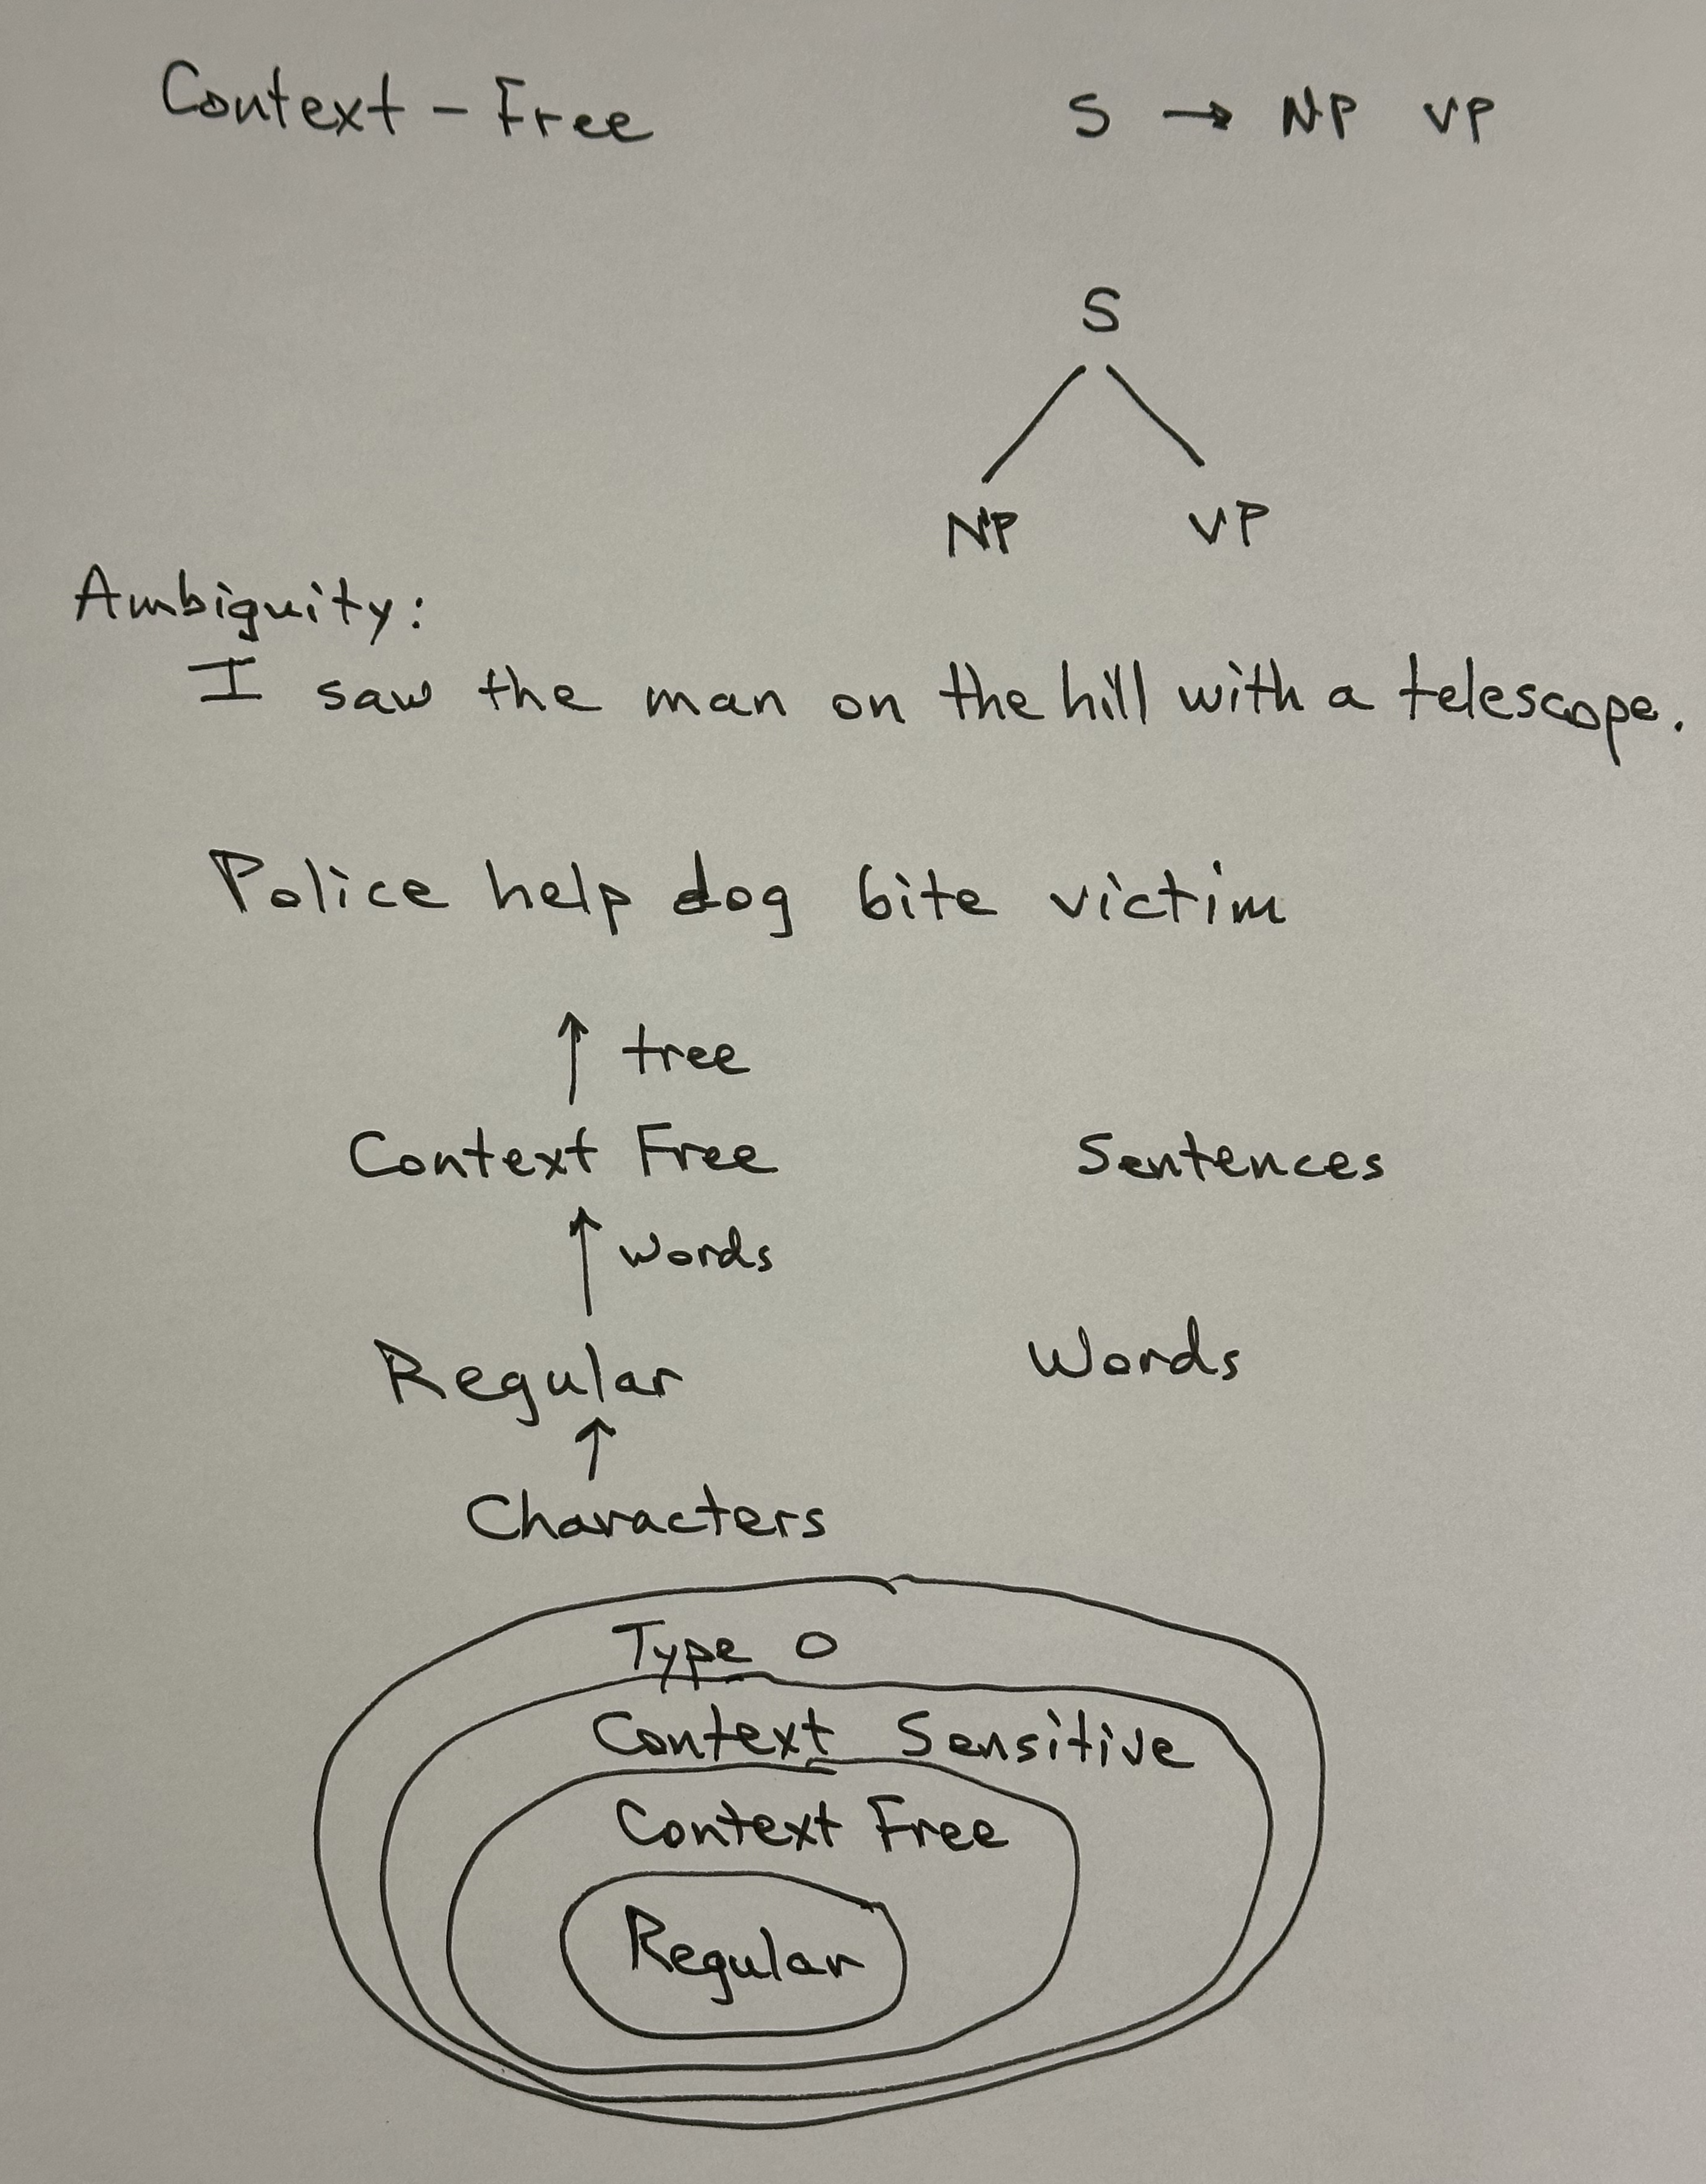 Context - Free S → NP VP
S
NP VP
Ambiguity:
I saw the man on the hill with a telescope.
Police help dog bite victim
↑ tree
Context Free Sentences
↑ words
Regular Words
↑
Characters
Type 0
Context Sensitive
Context Free
Regular